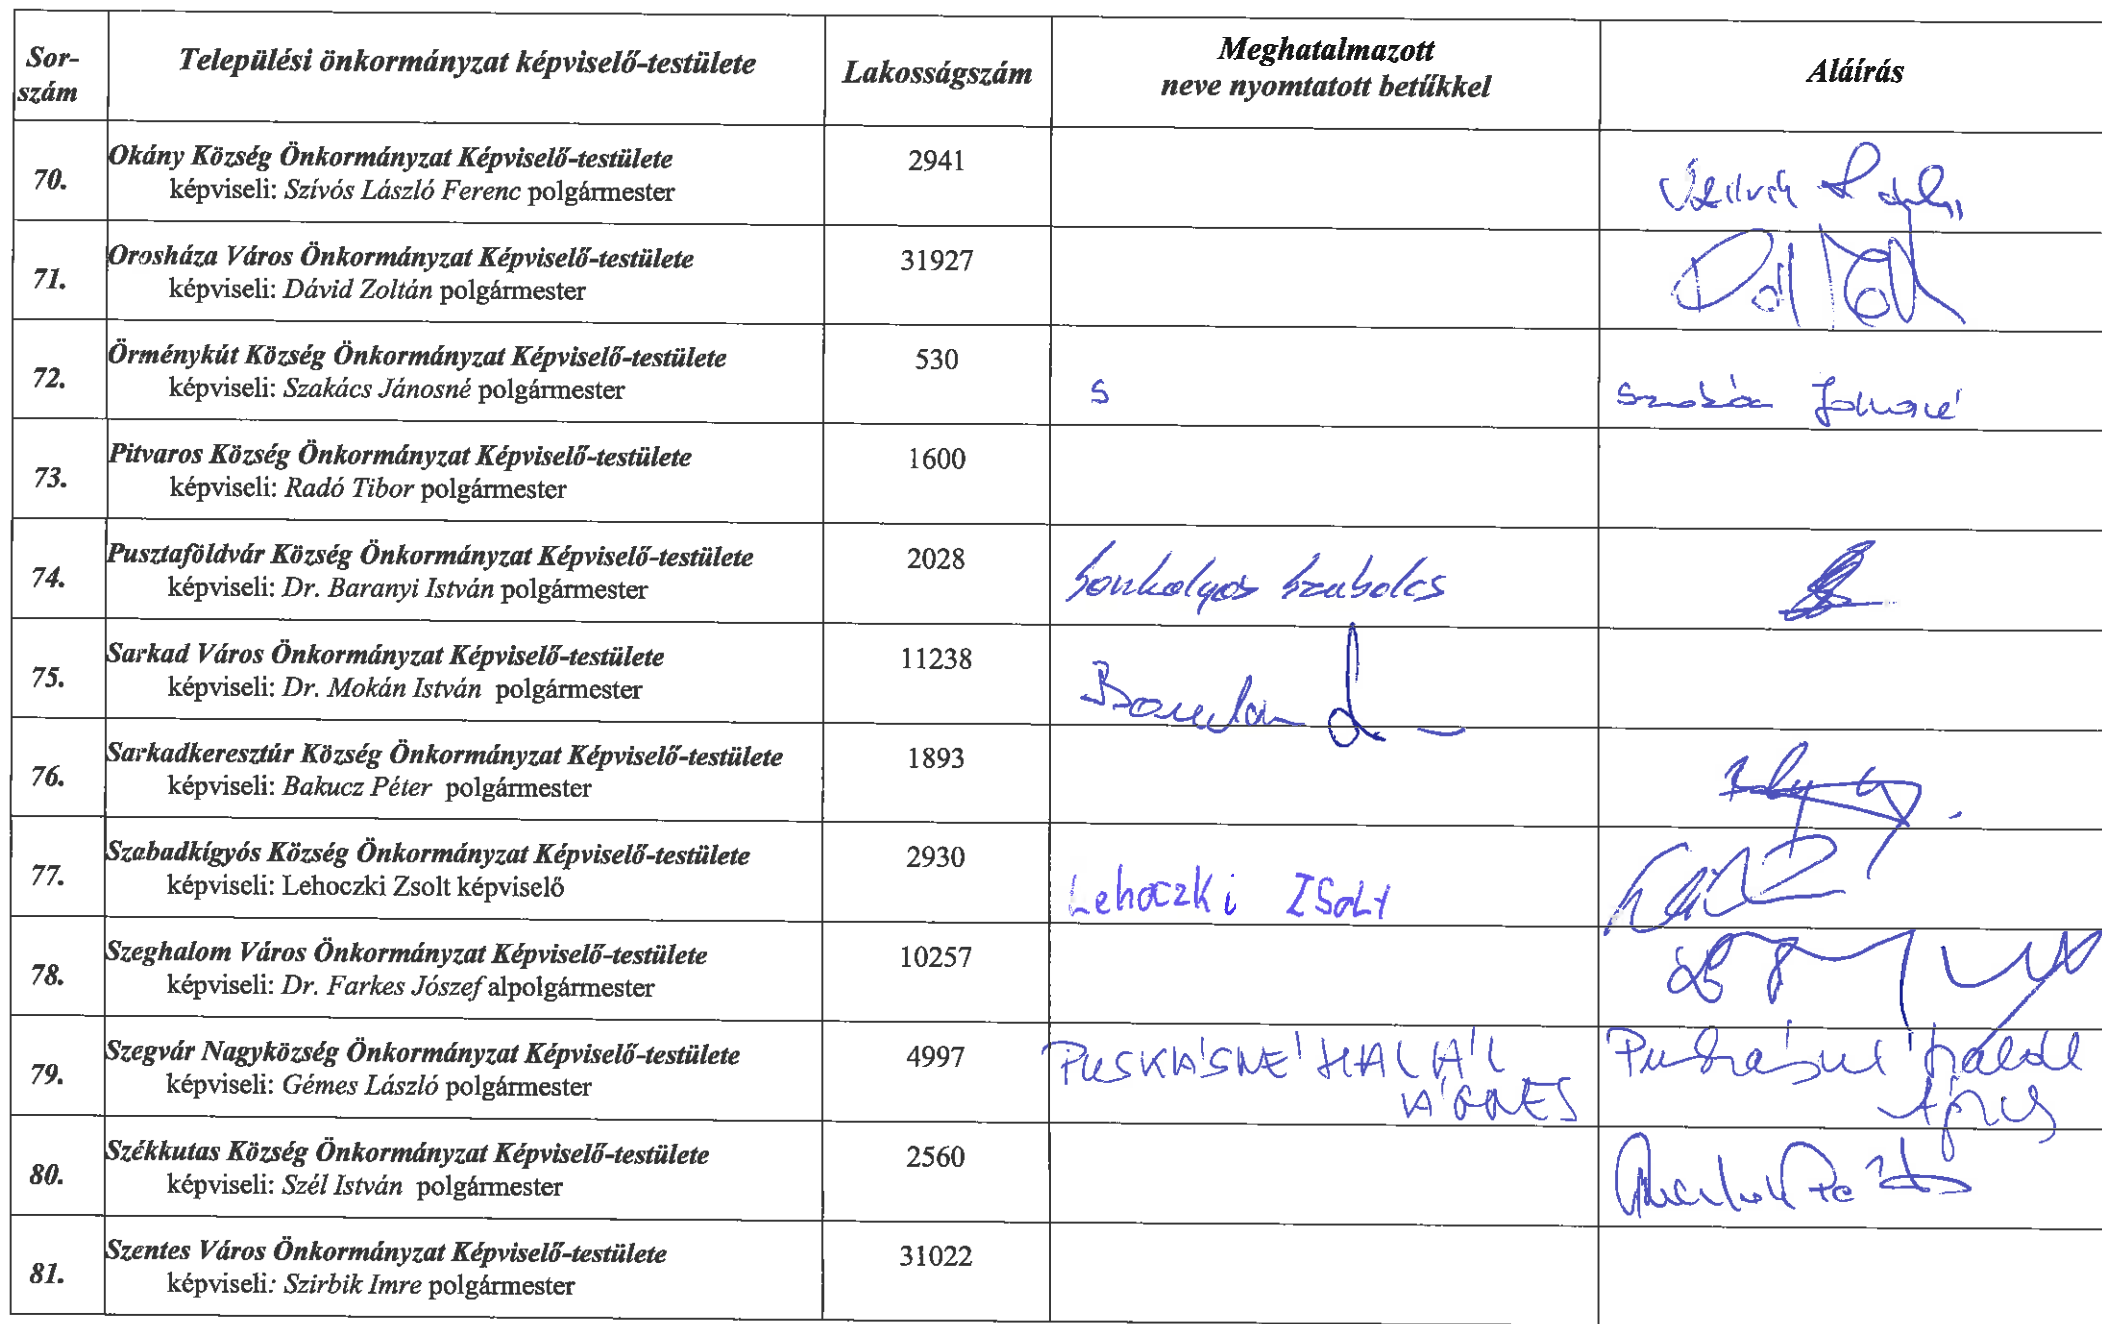 Sor-
szám
Települési önkormányzat képviselő-testülete
Lakosságszám
Meghatalmazott
neve nyomtatott betűkkel
Aláírás
70.
Okány Község Önkormányzat Képviselő-testülete
képviseli: Szívós László Ferenc polgármester
2941
71.
Orosháza Város Önkormányzat Képviselő-testülete
képviseli: Dávid Zoltán polgármester
31927
72.
Örménykút Község Önkormányzat Képviselő-testülete
képviseli: Szakács Jánosné polgármester
530
S
Szakács Jánosné
73.
Pitvaros Község Önkormányzat Képviselő-testülete
képviseli: Radó Tibor polgármester
1600
74.
Pusztaföldvár Község Önkormányzat Képviselő-testülete
képviseli: Dr. Baranyi István polgármester
2028
Sonkolyos Szabolcs
75.
Sarkad Város Önkormányzat Képviselő-testülete
képviseli: Dr. Mokán István polgármester
11238
76.
Sarkadkeresztúr Község Önkormányzat Képviselő-testülete
képviseli: Bakucz Péter polgármester
1893
77.
Szabadkígyós Község Önkormányzat Képviselő-testülete
képviseli: Lehoczki Zsolt képviselő
2930
Lehoczki ZSoLt
78.
Szeghalom Város Önkormányzat Képviselő-testülete
képviseli: Dr. Farkes Jószef alpolgármester
10257
79.
Szegvár Nagyközség Önkormányzat Képviselő-testülete
képviseli: Gémes László polgármester
4997
PUSKÁSNÉ HALÁL
ÁGNES
Puskásné Halál
Ágnes
80.
Székkutas Község Önkormányzat Képviselő-testülete
képviseli: Szél István polgármester
2560
81.
Szentes Város Önkormányzat Képviselő-testülete
képviseli: Szirbik Imre polgármester
31022